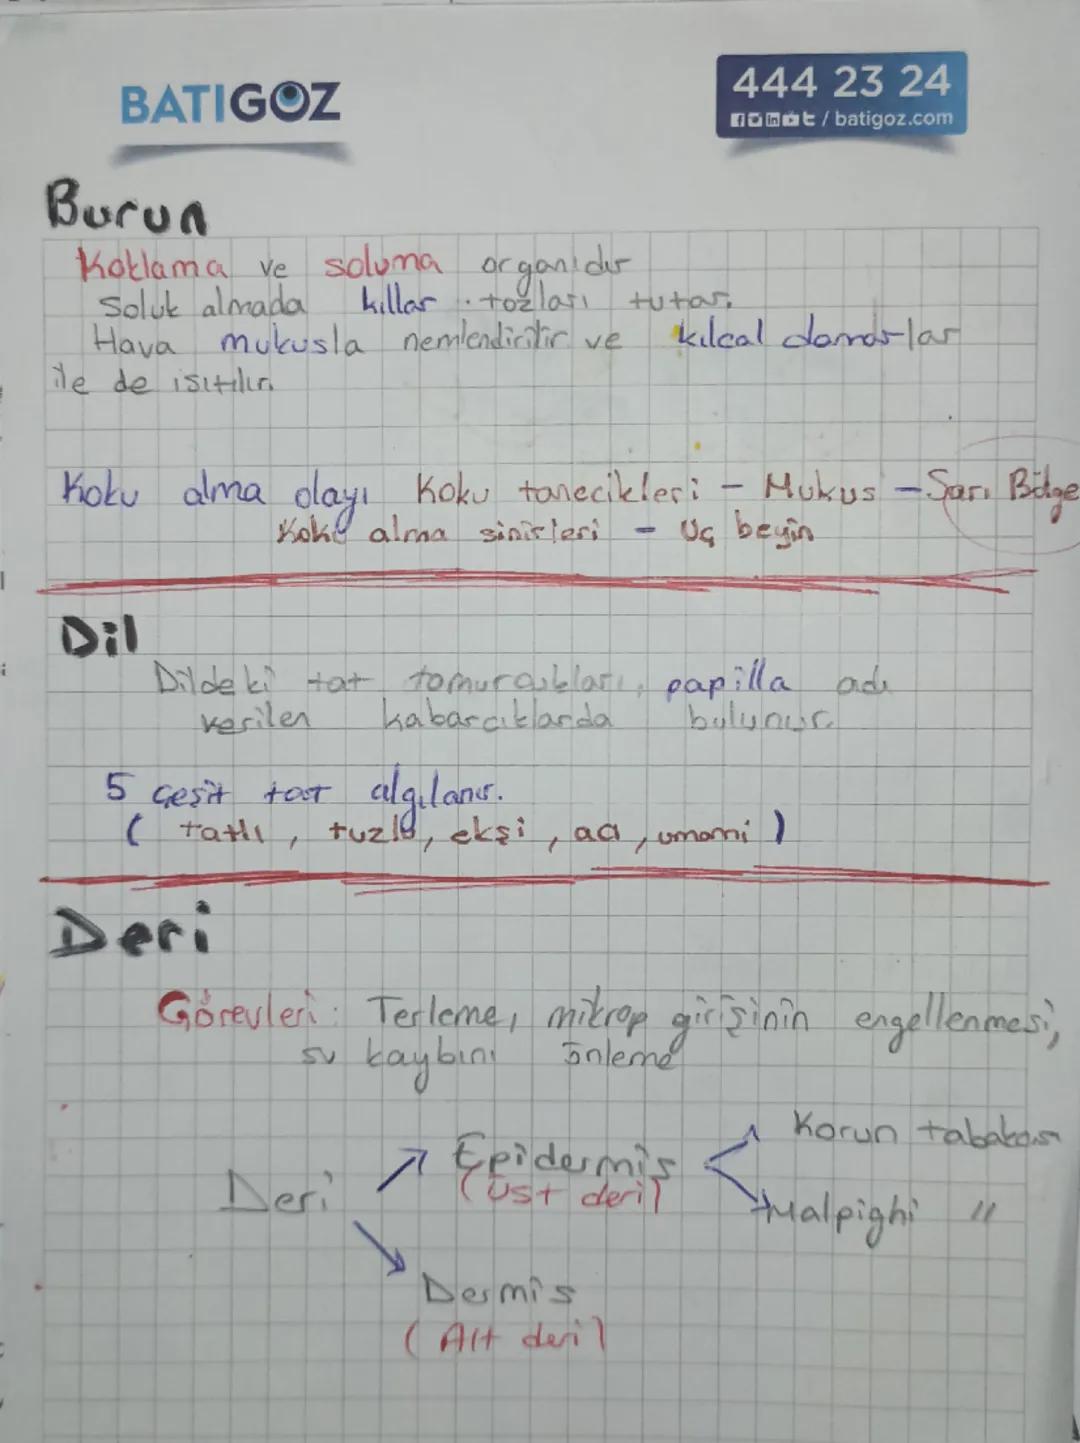 BATIGÖZ
444 23 24
/ batigoz.com
Burun
Koklama ve soluma organıdır
Soluk almada kıllar tozları tutar.
Hava mukusla nemlendirilir ve kılcal damarlar
ile de ısıtılır.
Koku alma olayı Koku tanecikleri - Mukus - Sarı Bölge
Koku alma sinirleri - Uç beyin
Dil
Dildeki tat tomurcukları, papilla adı
verilen kabarcıklarda bulunur.
5 çeşit tat algılanır.
( tatlı, tuzlu, ekşi, acı, umami )
Deri
Görevleri: Terleme, mikrop girişinin engellenmesi,
su kaybını önleme
Korun tabakası
Epidermis
(Üst deri)
Deri
Malpighi "
Dermis
(Alt deri)